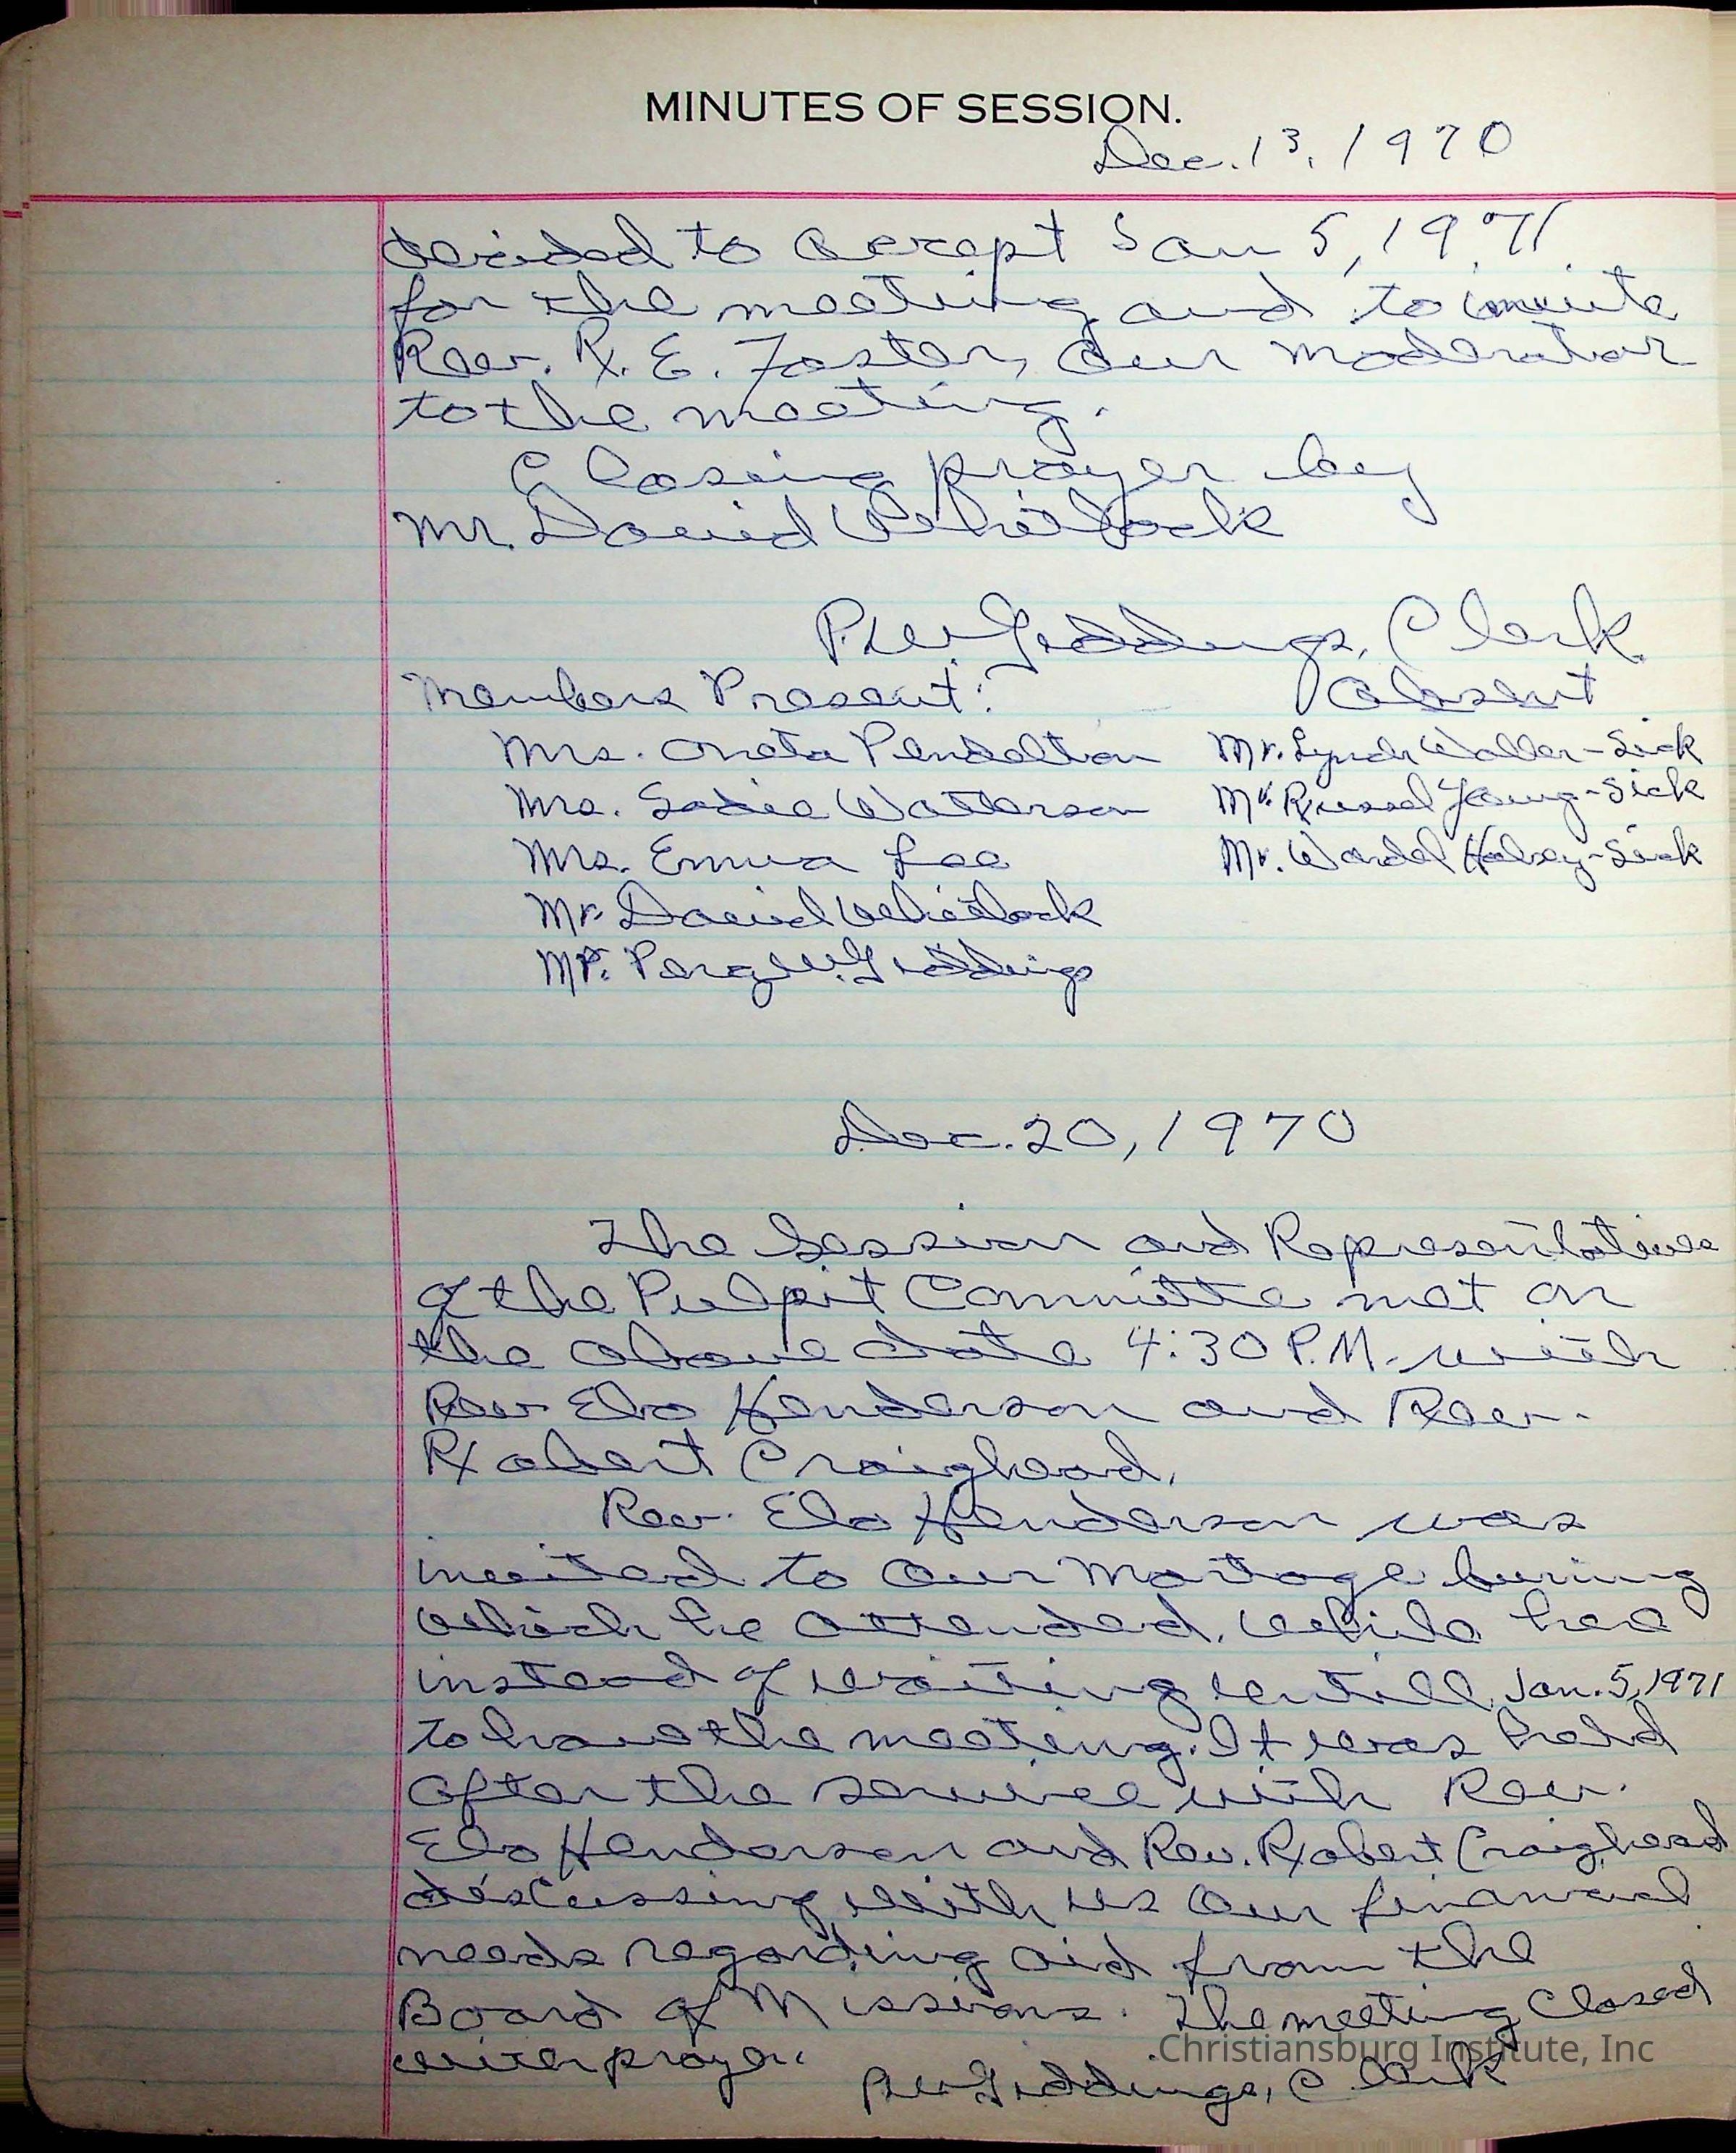 MINUTES OF SESSION.
Dec. 13, 1970
decided to accept Jan 5, 1971
for the meeting and to invite
Rev. R. E. Foster, our moderator
to the meeting.
Closing prayer by
Mr. David Whitlock
P.W. Giddings, Clerk.
Members Present: Absent
Mrs. Oneta Pendelton Mr. Lynch Waller-Sick
Mrs. Sadie Watterson Mr. Russel Young-Sick
Mrs. Emma Lee Mr. Wardel Halsey-Sick
Mr. David Whitlock
Mr. Percy W. Giddings
Dec. 20, 1970
The Session and Representatives
of the Pulpit Committe met on
the above date 4:30 P.M. with
Rev Elo Henderson and Rev.
Robert Craighead.
Rev. Elo Henderson was
invited to our Mortage burning
which he attended. While here
instead of waiting untill Jan. 5, 1971
to have the meeting. It was held
after the service with Rev.
Elo Henderson and Rev. Robert Craighead
discussing with us our financial
needs regarding aid from the
Board of Missions. The meeting Closed
with prayer.
P.W. Giddings, Clerk
Christiansburg Institute, Inc